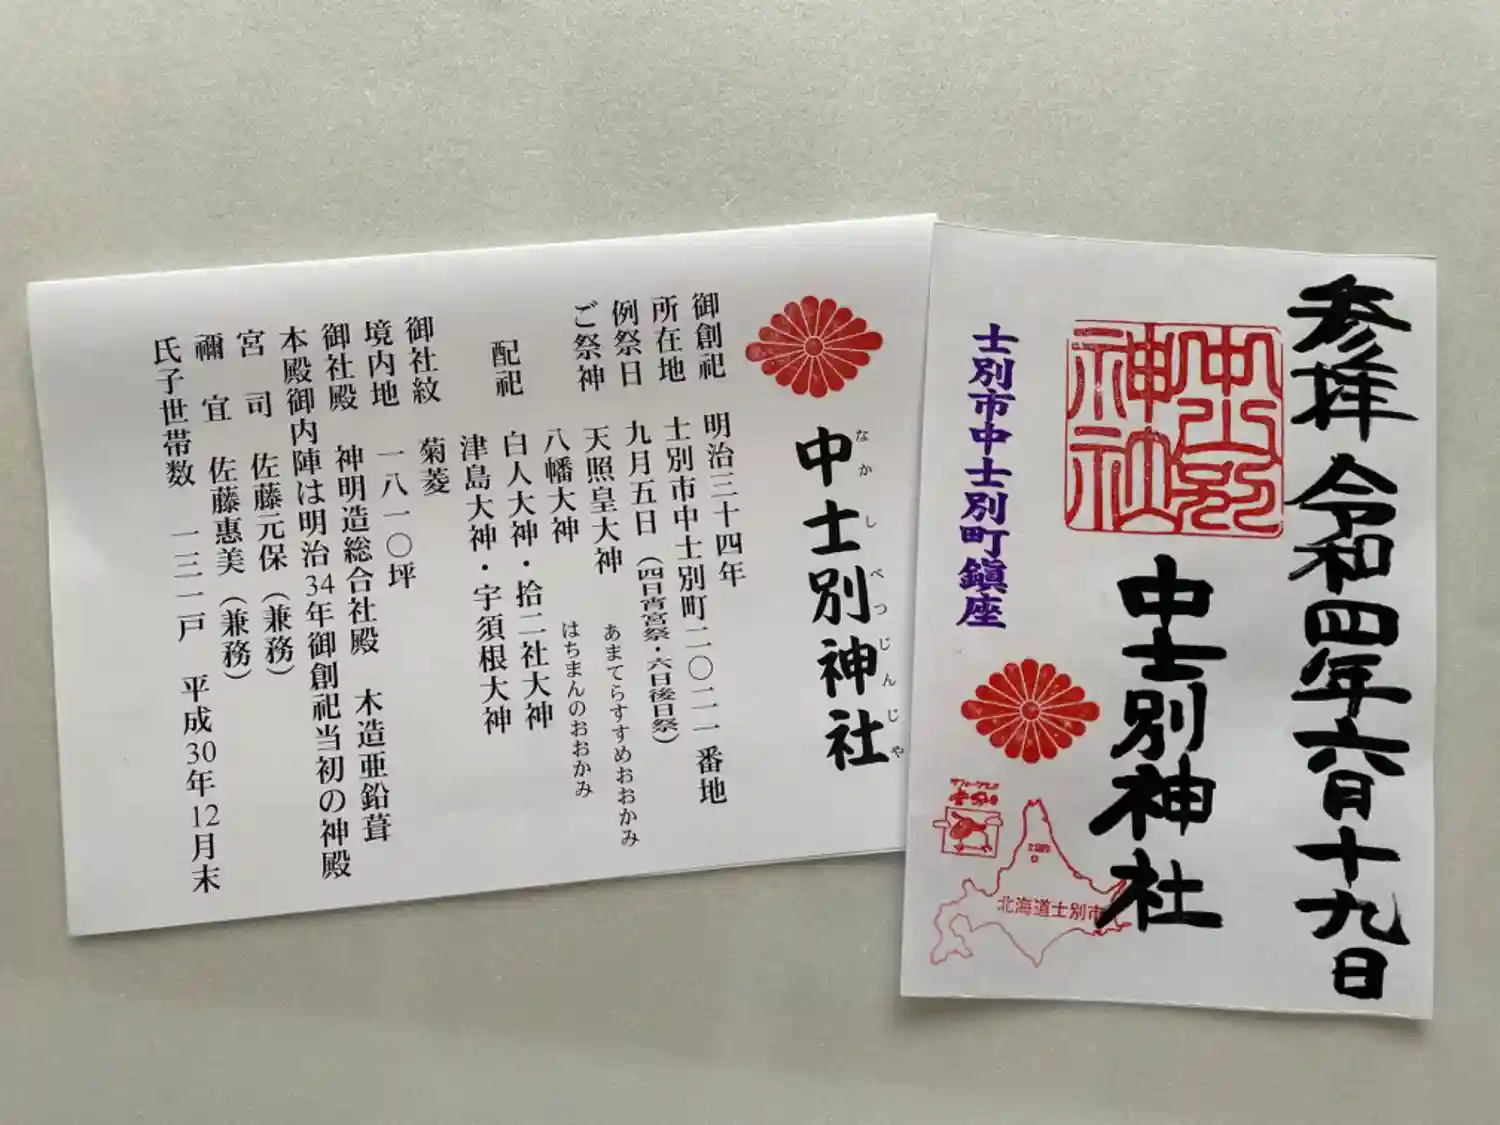 中士別神社
なかしべつじんじゃ
御創祀 明治三十四年
所在地 士別市中士別町二〇一一番地
例祭日 九月五日(四日宵宮祭・六日後日祭)
ご祭神 天照皇大神 あまてらすすめおおかみ
八幡大神 はちまんのおおかみ
配祀 白人大神・拾二社大神
津島大神・宇須根大神
御社紋 菊菱
境内地 一八一〇坪
御社殿 神明造総合社殿 木造亜鉛葺
本殿御内陣は明治34年御創祀当初の神殿
宮司 佐藤元保(兼務)
禰宜 佐藤惠美(兼務)
氏子世帯数 一三一戸 平成30年12月末
参拝 令和四年六月十九日
中士別神社
中士別神社
士別市中士別町鎮座
北海道士別市